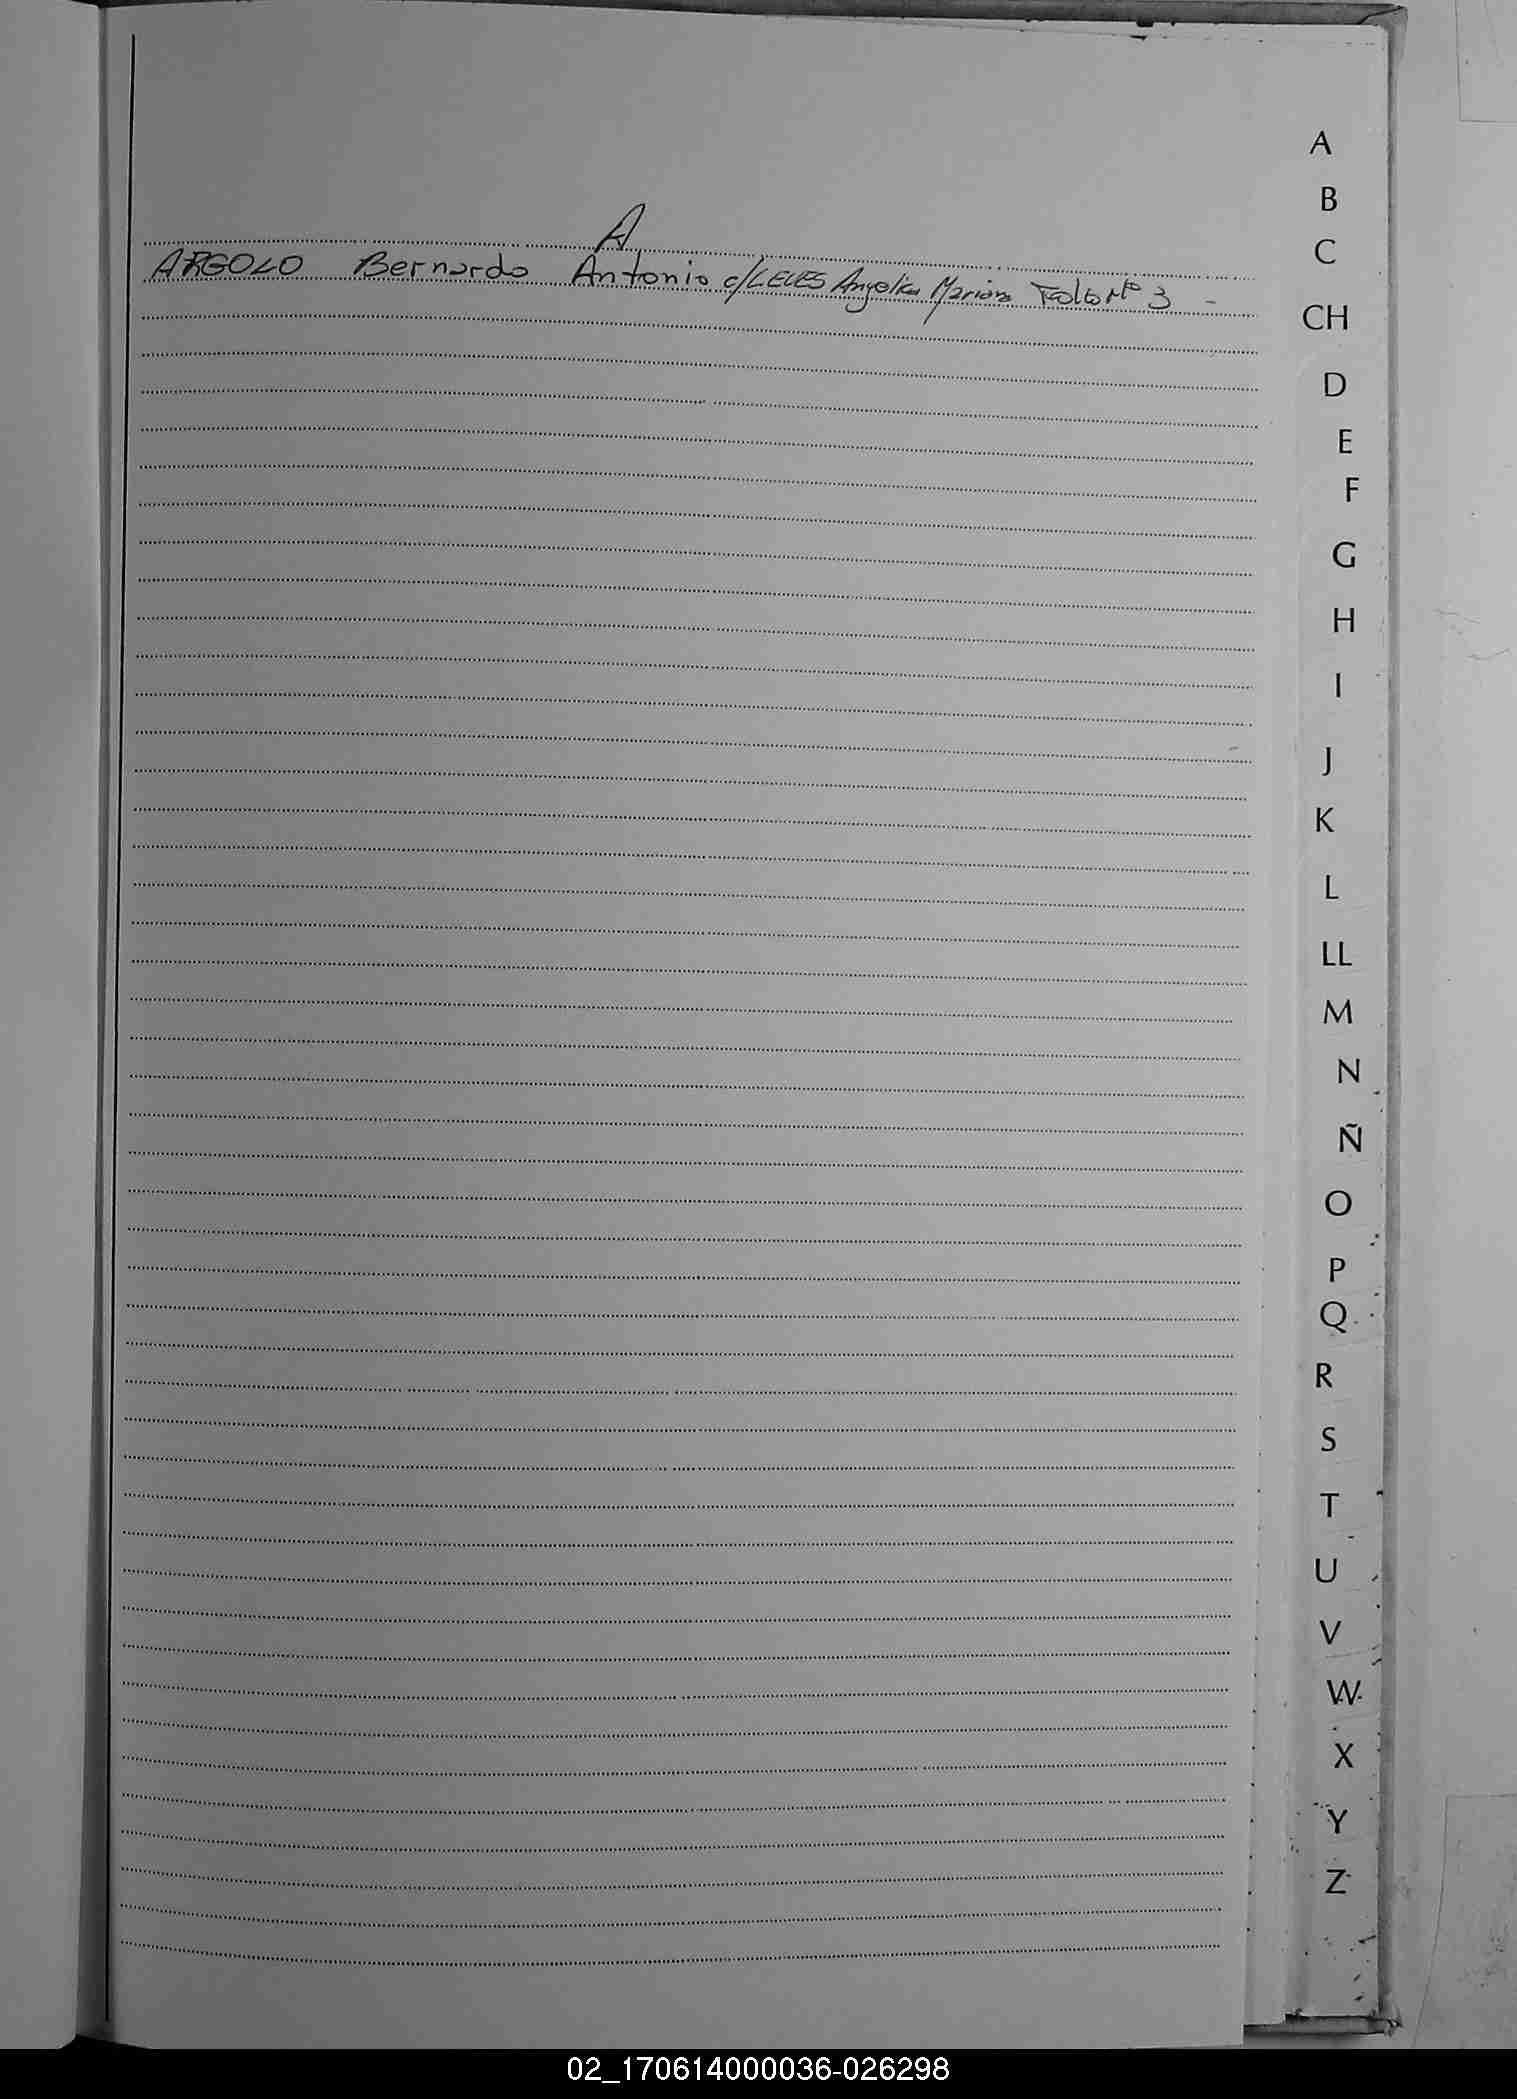 A
ARGOLO Bernardo Antonio c/LEUES Angelica Mariana Folio Nº 3 -
A
B
C
CH
D
E
F
G
H
I
J
K
L
LL
M
N
Ñ
O
P
Q
R
S
T
U
V
W
X
Y
Z
02_170614000036-026298